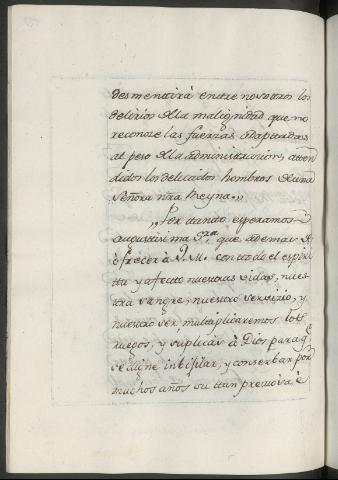 desmentirá entre nosotros los
delirios de la malignidad que no
reconoce las fuerzas adaptadas
al peso de la administracion, aten
didos los delicados hombros de una
Señora nra Reyna.,,
,,Por tanto esperamos
augustisima Sra, que ademas de
ofrecer à V.M. con todo el espiri
tu y afecto nuestras vidas, nues
tra sangre, nuestro servicio, y
nuestro ser, multiplicaremos los
ruegos, y suplicas à Dios para q.e
se digne, y conserbar por
muchos años su tan preciosa è